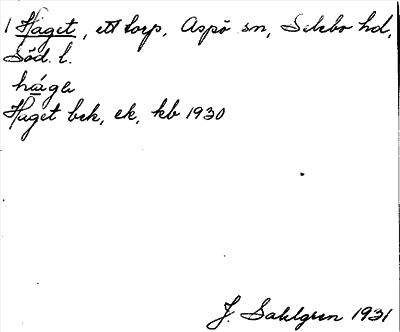 1 Haget, ett torp, Aspö sn, Selebo hd,
Söd. l.
hága
Haget bek, ek, kb 1930
J. Sahlgren 1931